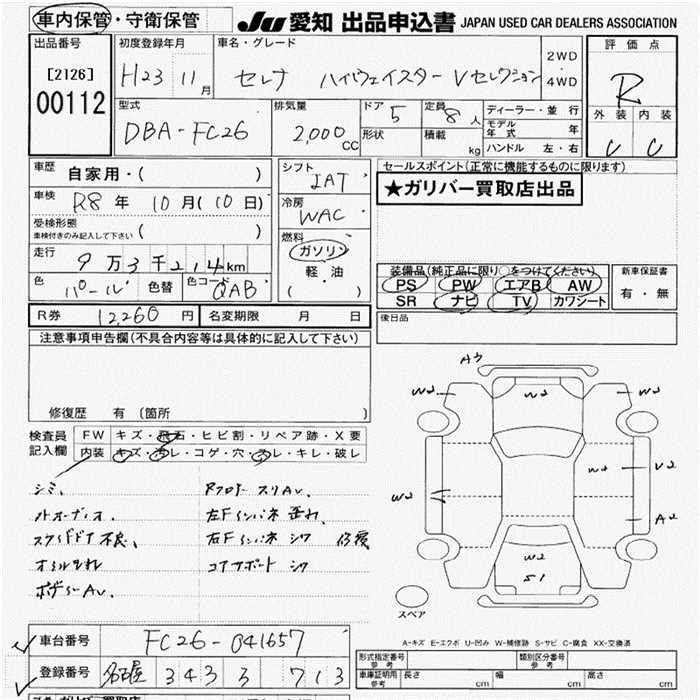 車内保管・守衛保管
JU 愛知 出品申込書 JAPAN USED CAR DEALERS ASSOCIATION
出品番号
[2126]
00112
初度登録年月
H23 11月
車名・グレード
セレナ ハイウェイスター Vセレクション
2WD
・
4WD
評価点
R
外装 内装
C C
型式
DBA-FC26
排気量
2,000cc
ドア 5
形状
定員 8人
積載 kg
ディーラー・並行
モデル年式 年
ハンドル 左・右
車歴
自家用・( )
車検
R8年 10月(10日)
受検形態
車検付きのみ記入して下さい ( )
走行
9万3千214km
色 パール 色替 色コード QAB
シフト
IAT
冷房
WAC
燃料
ガソリン
軽・油
( ・ )
セールスポイント(正常に機能するものに限ります)
★ガリバー買取店出品
装備品(純正品に限り○をつけてください)
PS PW エアB AW
SR ナビ TV カワシート
新車保証書
有・無
後日品
R券 12,260円 名変期限 月 日
注意事項申告欄(不具合内容等は具体的に記入して下さい)
修復歴 有(箇所 )
検査員
記入欄
FW キズ・飛石・ヒビ割・リペア跡・X要
内装 キズ・汚レ・コゲ・穴・スレ・キレ・破レ
シミ、
外オーディオ、
スライドドア不良、
ボデーAU、
RフロアースリAU、
左Fインパネ歪み、
右Fインパネシワ 修復
コアサポートシワ
A3
W2
W2
W2
W2
W2
V2
A2
W2
S1
スペア
A-キズ E-エクボ U-凹み W-補修跡 S-サビ C-腐食 XX-交換済
車台番号 FC26-041657
登録番号 名古屋 343 ろ 713
形式指定番号 参考
類別区分番号 参考
車庫証明用 参考 長さ cm 幅 cm 高さ cm